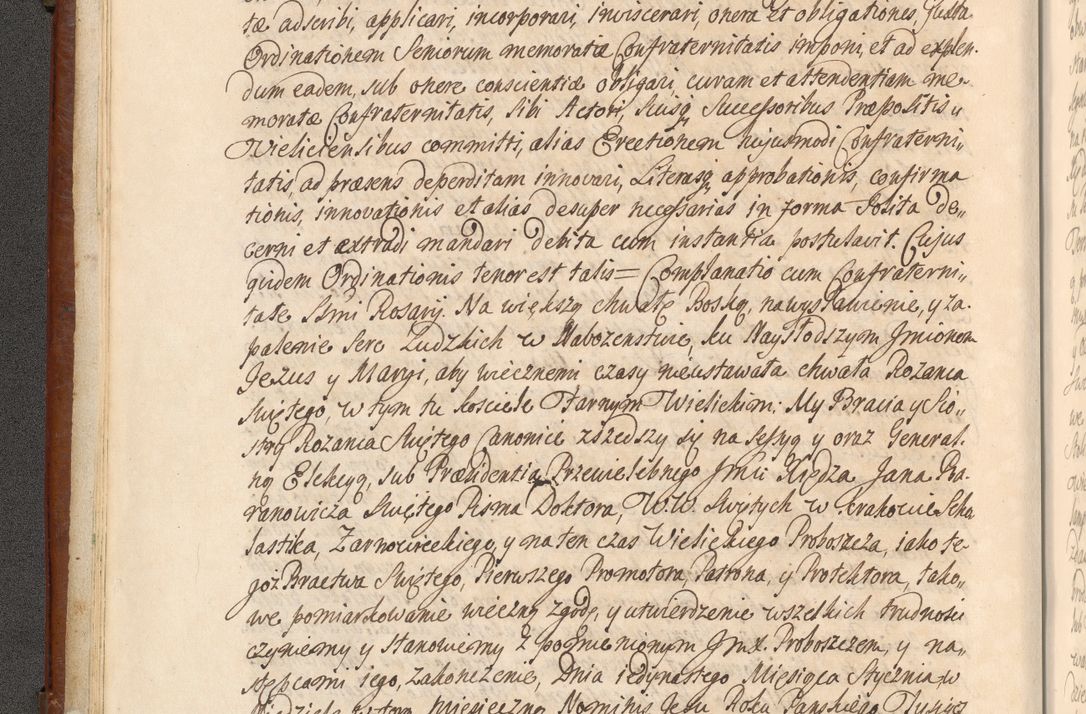 tæ adscribi, applicari, incorporari, inviscerari, onera et obligationes, Juxta
Ordinationem Seniorum memoratæ Confraternitatis imponi, et ad explen-
dum eadem, sub onere conscientiæ obligari, curam et attendentiam me-
moratæ Confraternitatis, Sibi Actori, Suisq Successoribus Præpositis
Wieliciensibus committi, alias Erectionem hujusmodi Confraterni„
tatis, ad præsens deperditam innovari, Literasq approbationis, confirma
tionis, innovationis et alias desuper necessarias in forma Solita de„
cerni et extradi mandari debita cum instantia postulavit. Cujus
quidem Ordinationis tenor est talis = Complanatio cum Confraterni„
tate SSmi Rosarij. Na większą chwałę Boską, na wysławienie, y za-
palenie Serc Ludzkich w Nabozenstwie, ku Naysłodszym Jmionom
Jezus y Maryi, aby wiecznemi czasy nieustawała chwała Rozanca
Swiętego, w tym tu kosciele Farnym Wielickim; My Bracia y Sio„
stry Rozanca Swiętego Canonice zszedszy się na Sessyą y oraz General-
ną Elekcyą, sub Præsidentia Przewielebnego Jmci Xiędza Jana Ba-
ranowicza Swiętego Pisma Doktora, W.W. Swiętych w krakowie Scho
lastika, Zarnowieckiego, y na ten czas Wielickiego Proboszcza, iako te-
goż Bractwa Swiętego, Pierwszego Promotora, Patrona, y Protektora, tako„
we pomiarkowanie wieczną zgodę, y utwierdzenie wszelkich trudnosci
czyniemy y stanowiemy z pomienionym Jmx. Proboszczem, y na„
stępcami iego, Zakonczenie, Dnia iedynastego Miesiąca Stycznia, w
Miesięczną Nominis Jesu Roku Panskiego Tysiąc